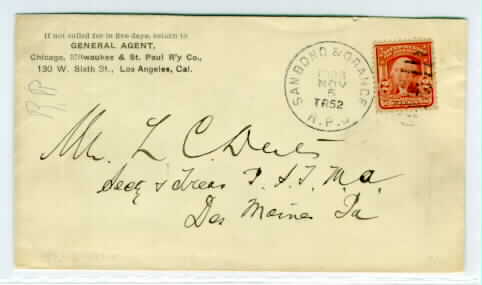 If not called for in five days, return to
GENERAL AGENT,
Chicago, Milwaukee & St. Paul R'y Co.,
130 W. Sixth St., Los Angeles, Cal.
SANBDNO & ORANGE
NOV
5
TR52
R.P.O
Mr L C
Secy & Treas T. & T. M. a.
Des Moines Ia